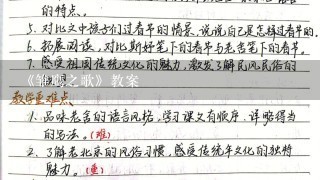 的特点。
5. 对比文中孩子们过春节的情景，说说自己是怎样过春节的。
6. 拓展阅读，对比斯好笔下的春节与老舍笔下的春节。
7. 感受祖国传统文化的魅力，激发了解民风民俗的
《雏鹰之歌》教案
教学重难点
1. 品味老舍的语言风格，学习课文有顺序、详略得当
的写法。（难）
2. 了解老北京的风俗习惯，感受传统年文化的独特
魅力。（重）